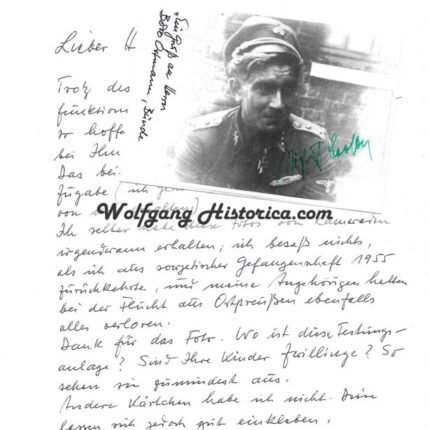 Lieber H
Ein Gruß an Herrn
Bünde
Trotz des
funktions
er hoffe
bei Ihn
Das bei
Zugabe (ich
von
Wolfgang Historica.com
Ich selber habe diese Fotos von Kameraden
irgendwann erhalten; ich besaß nichts,
als ich aus sowjetischer Gefangenschaft 1955
zurückkehrte, und meine Angehörigen hatten
bei der Flucht aus Ostpreußen ebenfalls
alles verloren.
Dank für das Foto. Wo ist diese Festungs-
anlage? Sind Ihre Kinder Zwillinge? So
sehen sie zumindest aus.
Andere Kärtchen habe ich nicht. Diese
lassen sich jedoch gut einkleben.